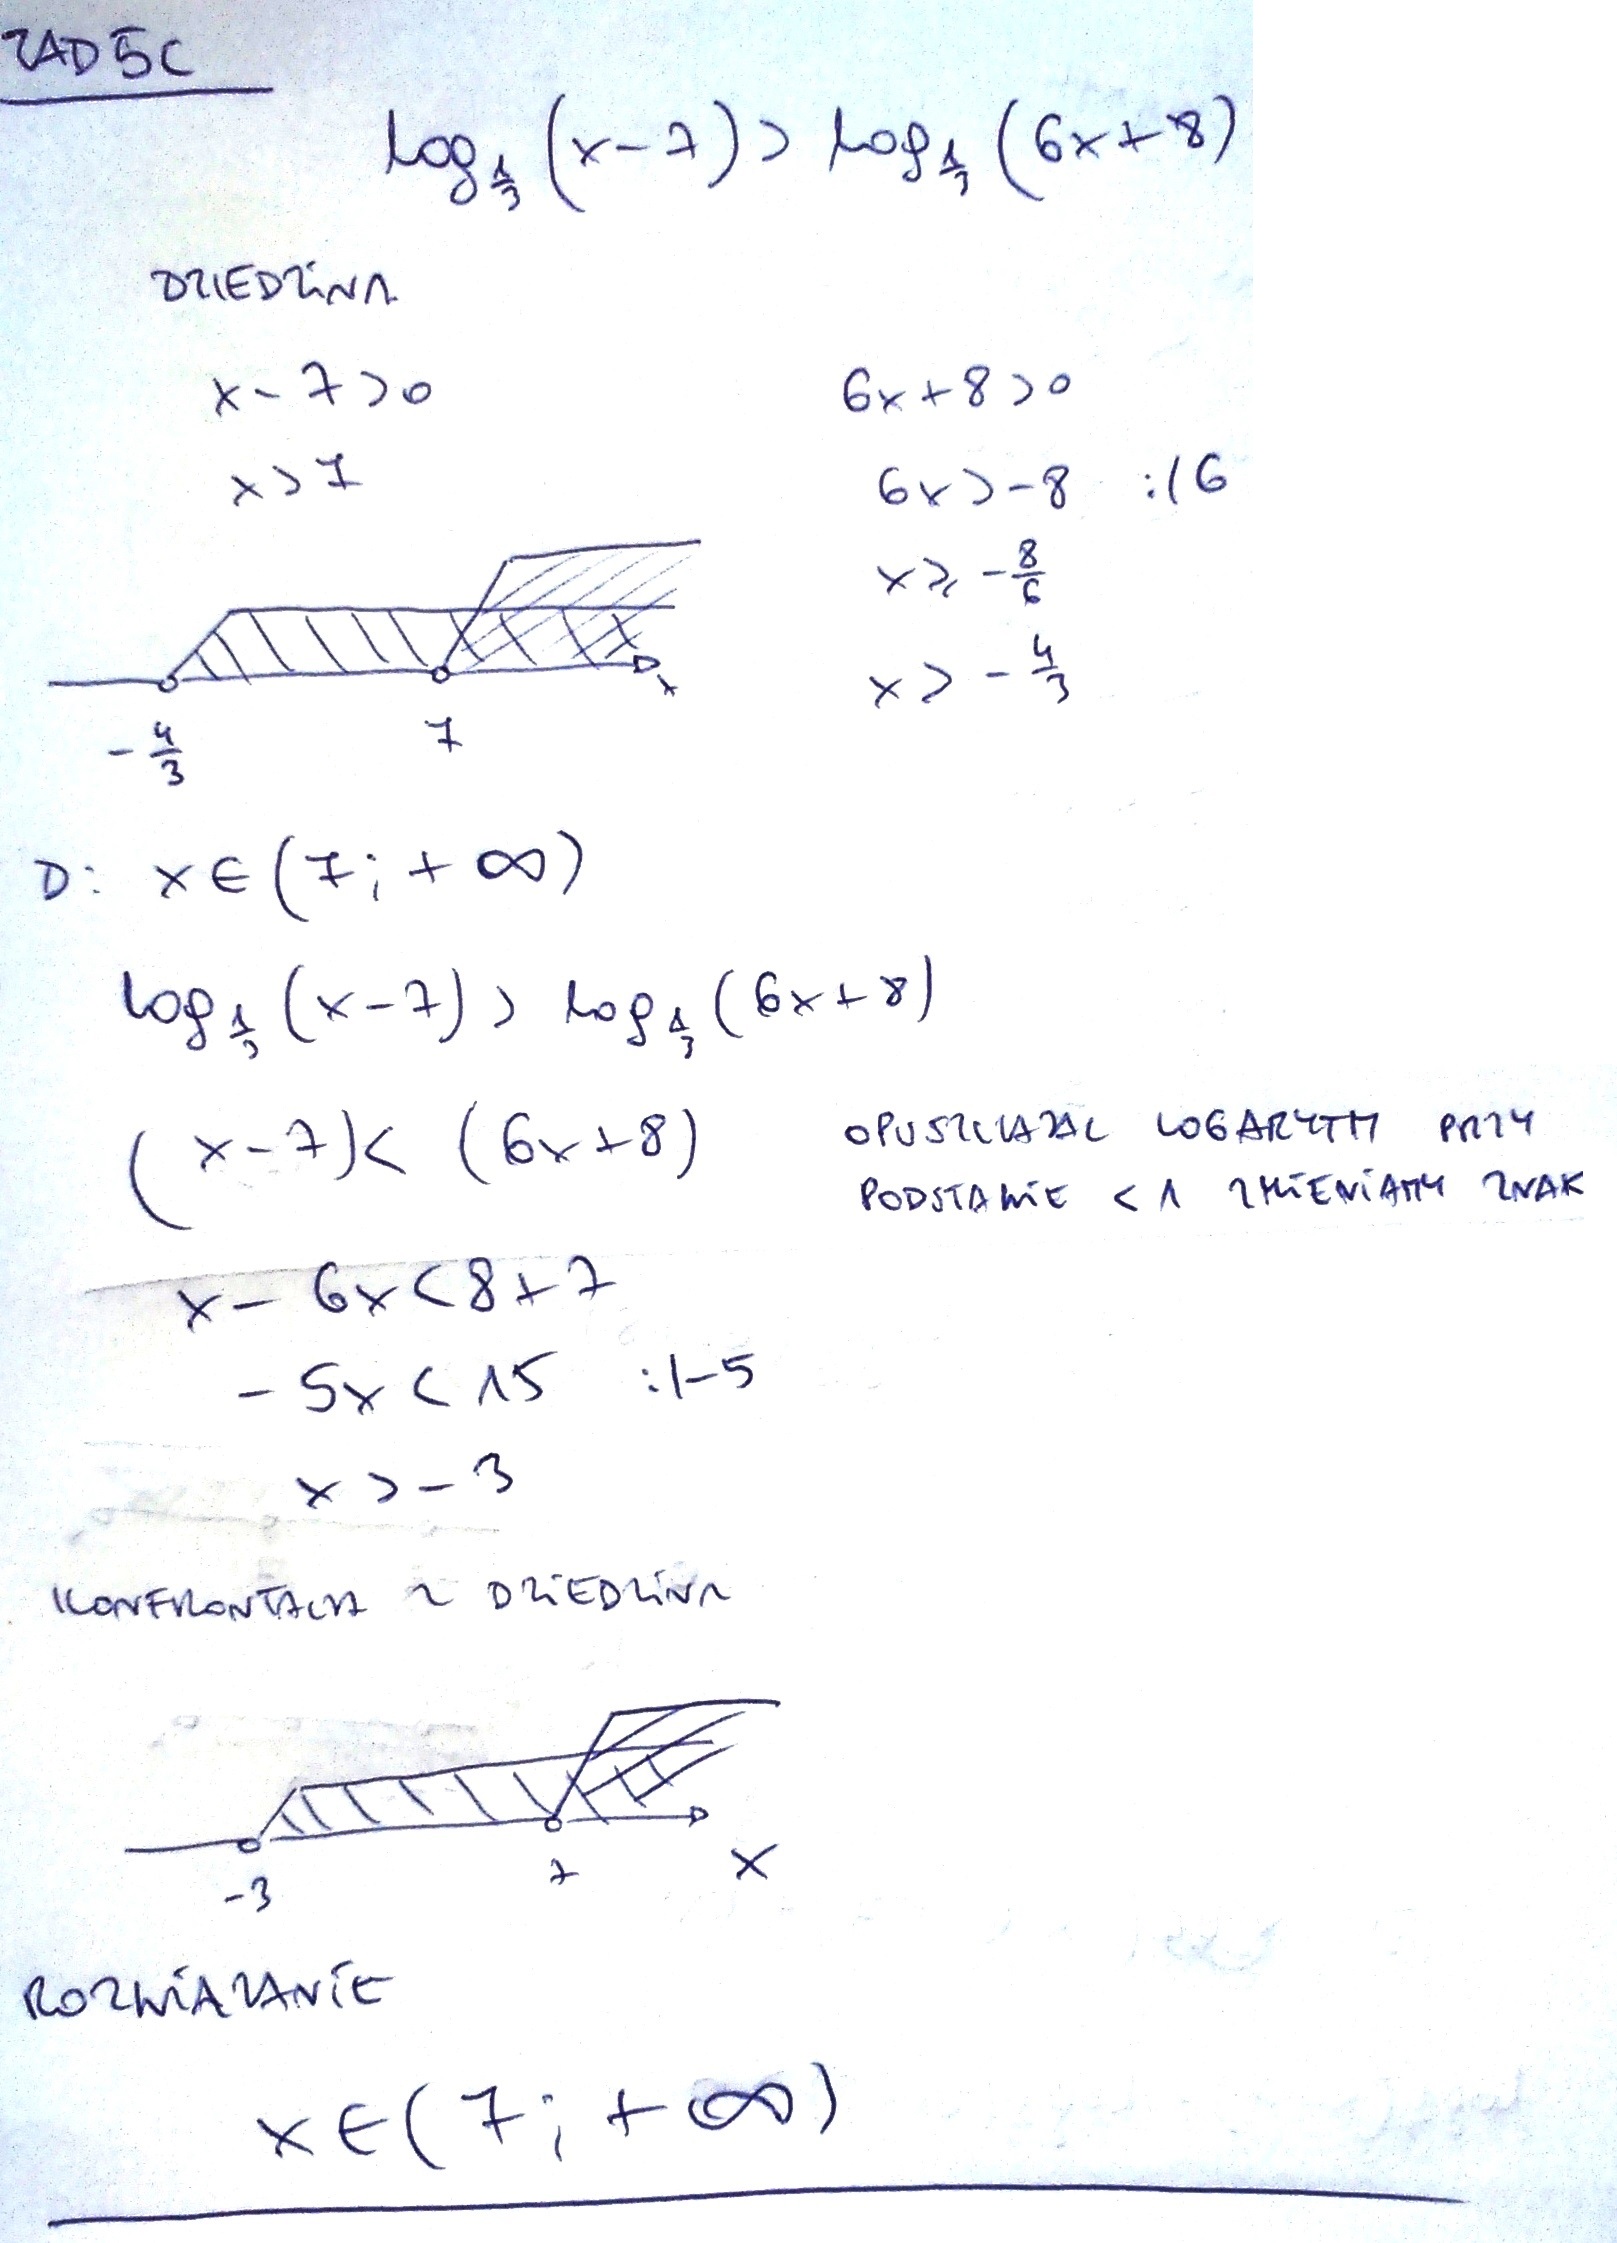 ZAD 5C
log_{1/3} (x-7) > log_{1/3} (6x+8)
DZIEDZINA
x-7>0
6x+8>0
x>7
6x>-8 :/6
x≥ -8/6
x> -4/3
x
-4/3 7
D: x∈(7;+∞)
log_{1/3} (x-7) > log_{1/3} (6x+8)
(x-7)< (6x+8)
OPUSZCZAJĄC LOGARYTM PRZY
PODSTAWIE <1 ZMIENIAMY ZNAK
x- 6x<8+7
-5x<15 :/-5
x>-3
KONFRONTACJA Z DZIEDZINĄ
-3 7 x
ROZWIAZANIE
x∈(7;+∞)